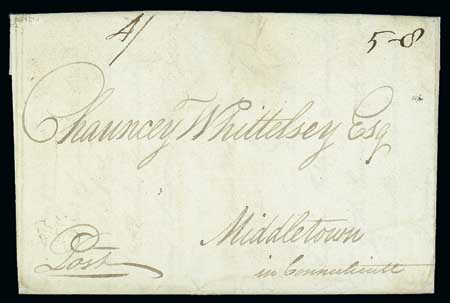 4/
5-8
Chauncey Whittelsey Esq
Middletown
in Connecticutt
Post